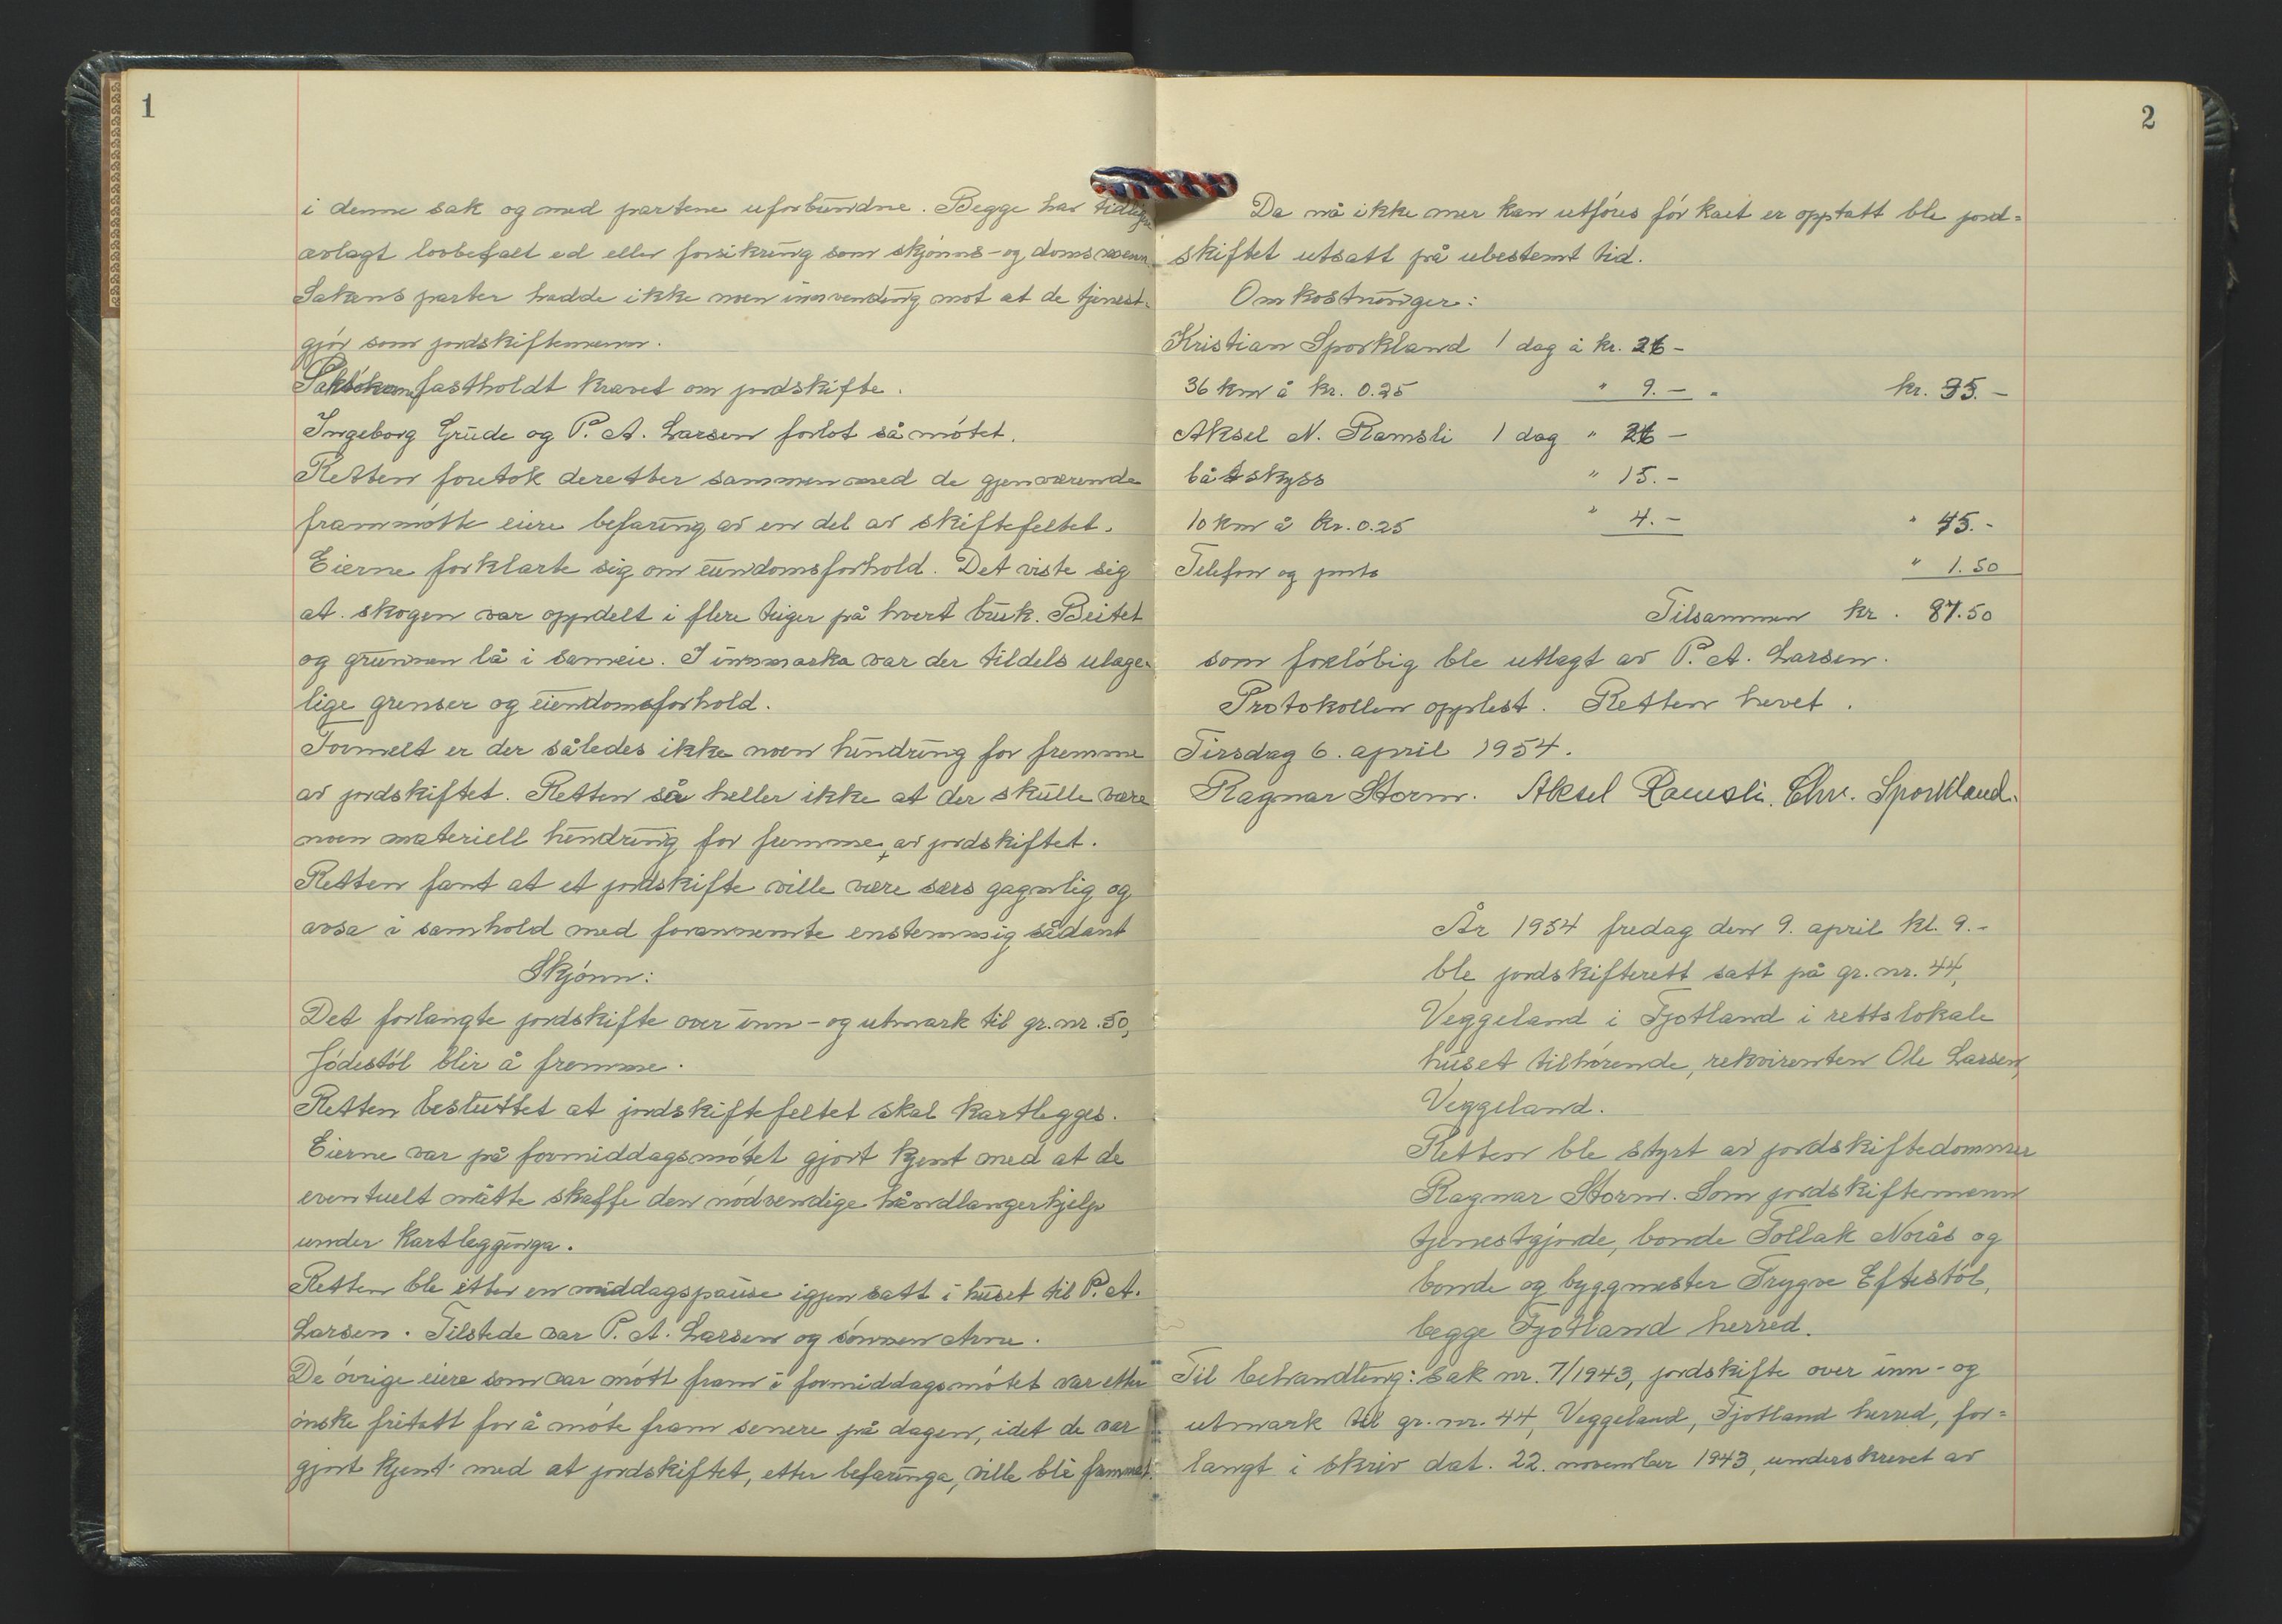 1
i denne sak og med partene uforbundne. Begge har tidligere
avlagt lovbefalt ed eller forsikring som skjønns- og domsmenn.
Sakens parter hadde ikke noen innvending mot at de tjenest-
gjør som jordskiftemenn.
Saksøkerne fastholdt kravet om jordskifte.
Ingeborg Grude og P. A. Larsen forlot så møtet.
Retten foretok deretter sammen med de gjenværende
frammøtte eiere befaring av en del av skiftefeltet.
Eierne forklarte sig om eiendomsforhold. Det viste sig
at skogen var oppdelt i flere teiger på hvert bruk. Beitet
og grunnen lå i sameie. I innmarka var der tildels ulage-
lige grenser og eiendomsforhold.
Formelt er der således ikke noen hindring for fremme
av jordskiftet. Retten så heller ikke at der skulle være
noen materiell hindring for fremme av jordskiftet.
Retten fant at et jordskifte ville være særs gagnlig og
avsa i samhold med forannemte enstemmig sådant
Skjønn:
Det forlangte jordskifte over inn- og utmark til gr. nr. 50,
Jødestøl blir å fremme.
Retten besluttet at jordskiftefeltet skal kartlegges.
Eierne var på formiddagsmøtet gjort kjent med at de
eventuelt måtte skaffe den nødvendige håndlangerhjelp
under kartlegginga.
Retten ble etter en middagspause igjen satt i huset til P. A.
Larsen. Tilstede var P. A. Larsen og sønnen Arne.
De øvrige eiere som var møtt fram i formiddagsmøtet var etter
ønske fritatt for å møte fram senere på dagen, idet de var
gjort kjent med at jordskiftet, etter befaringa, ville bli fremmet.
2
Da nå ikke mer kan utføres før kart er opptatt ble jord=
skiftet utsatt på ubestemt tid.
Omkostninger:
Kristian Sporkland 1 dag à kr. 26 -
36 km à kr. 0.25 " 9. - kr. 35. -
Aksel N. Ramsli 1 dag " 26 -
båtskyss " 15. -
10 km à kr. 0.25 " 4. - " 45. -
Telefon og porto " 1.50
Tilsammen kr. 81.50
som foreløbig ble utlagt av P. A. Larsen.
Protokollen opplest. Retten hevet.
Tirsdag 6. april 1954.
Ragnar Storm. Aksel Ramsli. Chr. Sporkland.
År 1954 fredag den 9. april kl. 9. -
ble jordskifterett satt på gr. nr. 44,
Veggeland i Fjotland i rettslokale
huset tilhørende, rekvirenten Ole Larsen,
Veggeland.
Retten ble styrt av jordskiftedommer
Ragnar Storm. Som jordskiftemenn
tjenestgjorde, bonde Tollak Norås og
bonde og byggmester Trygve Eftestøl,
begge Fjotland herred.
Til behandling: Sak nr. 7/1943, jordskifte over inn- og
utmark til gr. nr. 44, Veggeland, Fjotland herred, for=
langt i skriv dat. 22. november 1943, underskrevet av